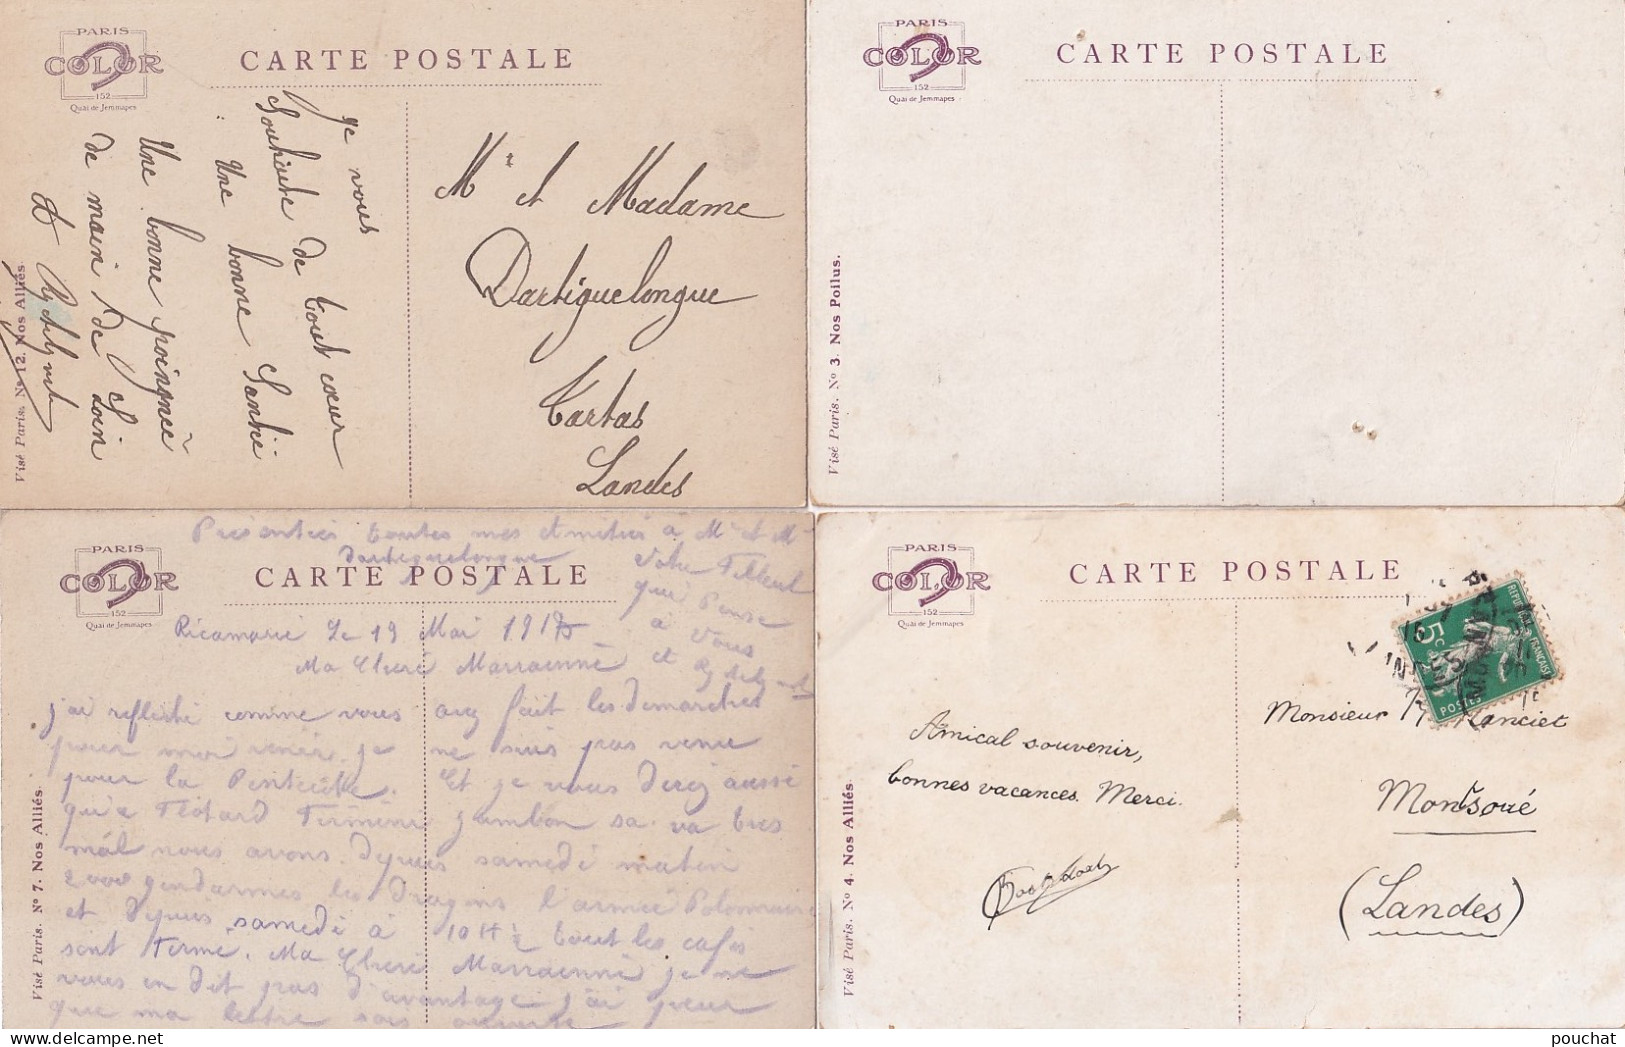 PARIS
COLOR
152
Quai de Jemmapes
CARTE POSTALE
Visé Paris. No 12. Nos Alliés
je vous
Souhaite de tout cœur
Une bonne Santié
Une bonne poingnée
de main de Loin
Mr et Madame
Dartiguelongue
Tartas
Landes
PARIS
COLOR
152
Quai de Jemmapes
CARTE POSTALE
Visé Paris. No 3. Nos Poilus.
PARIS
COLOR
152
Quai de Jemmapes
CARTE POSTALE
Visé Paris. No 7. Nos Alliés.
toutes mes à Mr et Mme
Dartiguelongue
votre Filleul
qui Pense
à Vous
et
Ricamarie Le 19 Mai 1918
Ma Cheré Marrainne
j'ai reflechi comme vous avez fait les demarches
pour moi venir je ne suis pas venu
pour la Pentecôte. Et je vous direz aussi
jambon sa va tres
mal nous avons Depuis samedi matin
2000 gendarmes les Dragons l'armée Polonaise
et depuis samedi à 10 H ½ tout les cafés
sont Fermé. Ma Cheré Marrainne je ne
vous en dit pas d'avantage j'ai peur
que ma lettre sois ouverte
PARIS
COLOR
152
Quai de Jemmapes
CARTE POSTALE
Visé Paris. No 4. Nos Alliés
RÉPUBLIQUE FRANÇAISE
5c
POSTES
Amical souvenir,
bonnes vacances. Merci.
Monsieur Lanciet
Montsoué
(Landes)
pouchat